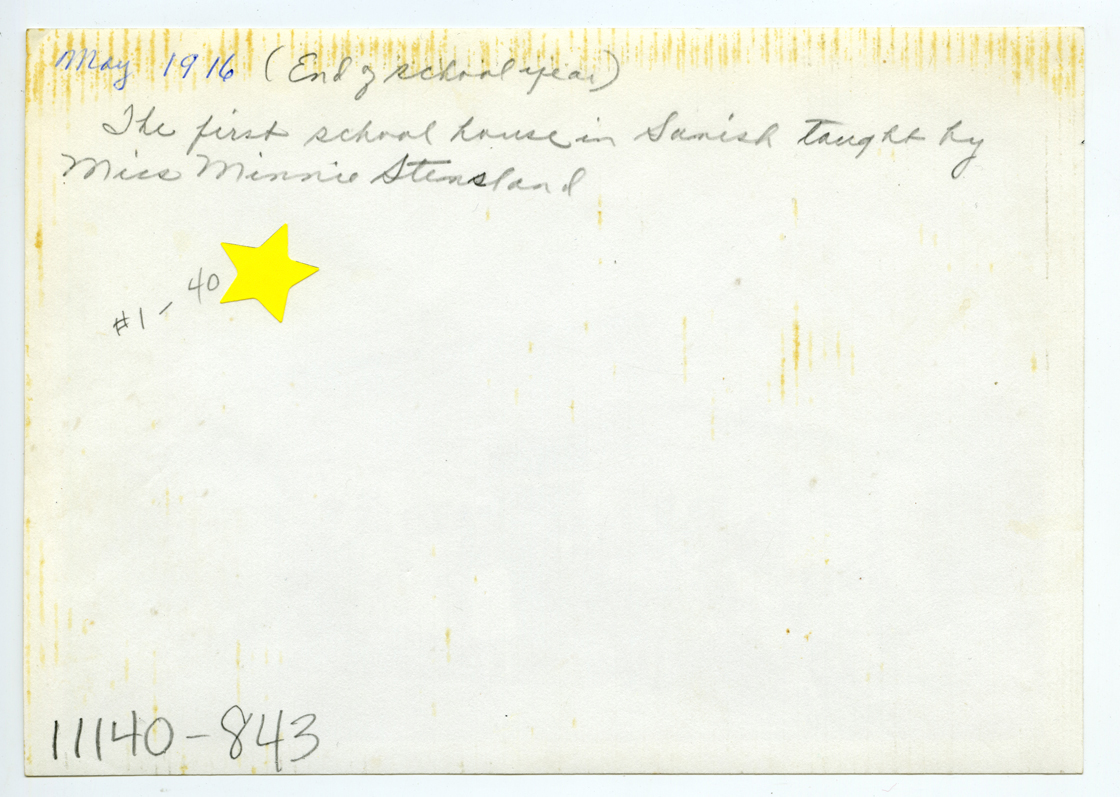 May 1916 (End of school year)
The first school house in Sanish taught by
Miss Minnie Stensland
#1 - 40
11140-843